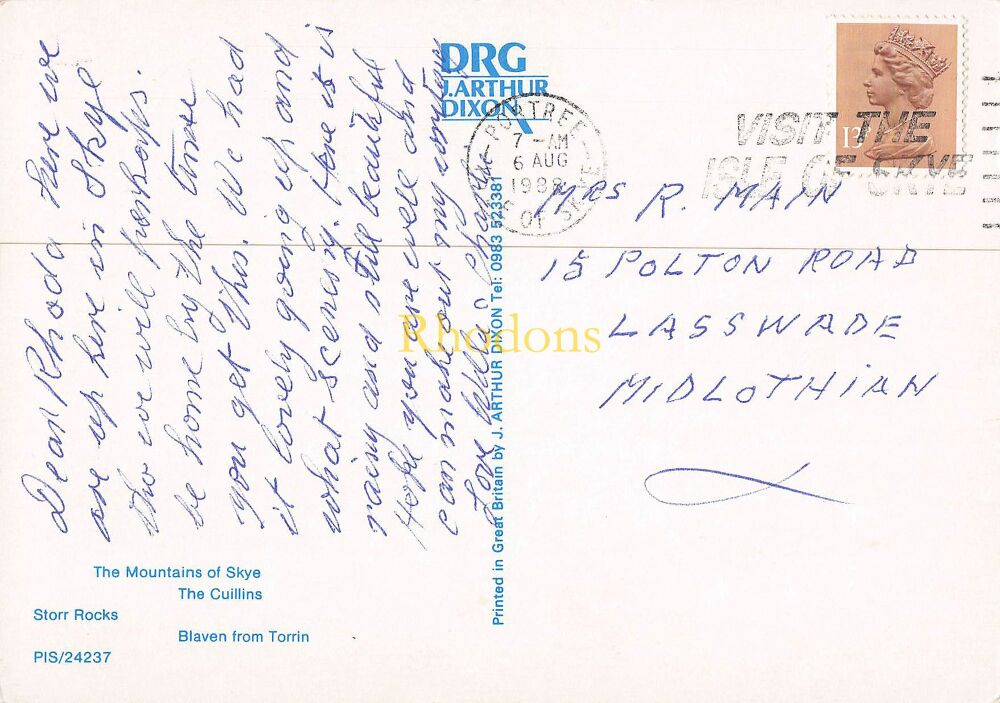 Dear Rhoda here we
are up here in Skye
tho we will perhaps.
be home by the time
you get this. We had
it lovely going up and
what scenery. Here it is
rainy and still beautiful
Hope you are well and
can make out my
Love Willa & Charlie
DRG
J.ARTHUR
DIXON
PORTREE
7 - AM
6 AUG
1988
ISLE OF SKYE
VISIT THE
ISLE OF SKYE
13
MRS R. MAIN
15 POLTON ROAD
LASSWADE
MIDLOTHIAN
Rhodons
Printed in Great Britain by J. ARTHUR DIXON Tel: 0983 523381
The Mountains of Skye
The Cuillins
Storr Rocks
Blaven from Torrin
PIS/24237